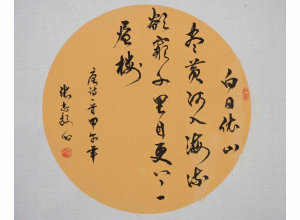 白日依山
盡黄河入海流
欲窮千里目更上一
層樓
唐诗一首甲午年